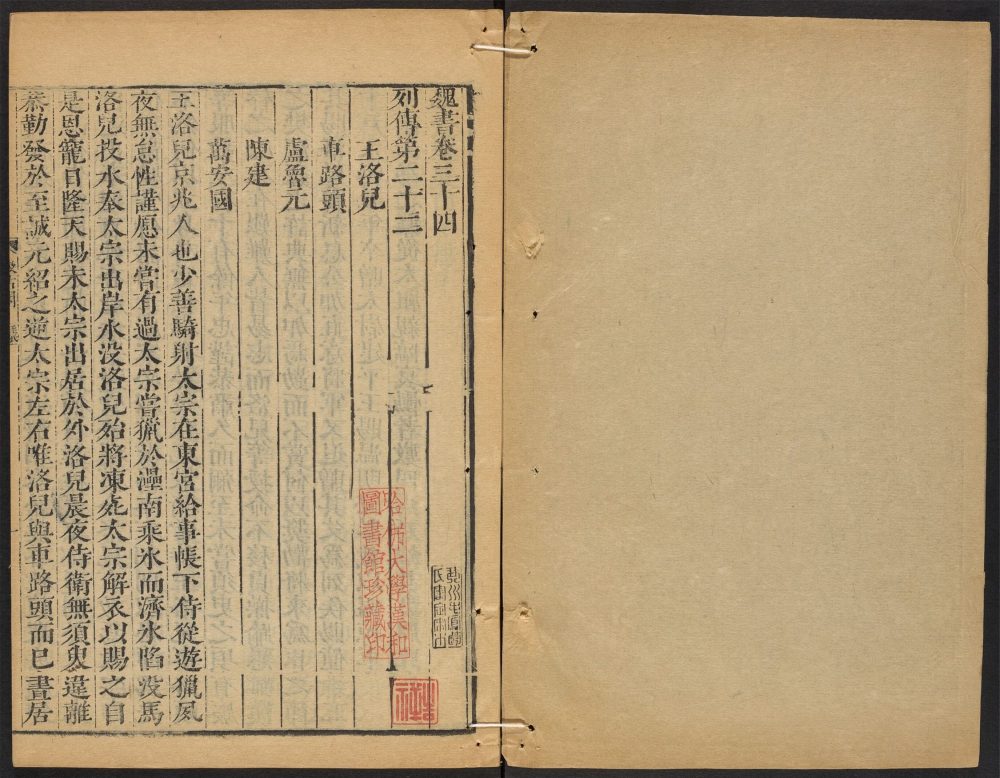 魏書卷三十四
列傳第二十二
王洛兒
車路頭
盧魯元
陳建
萬安國
王洛兒京兆人也少善騎射太宗在東宮給事帳下侍從遊獵夙
夜無怠性謹愿未嘗有過太宗嘗獵於灅南乘氷而濟氷陷没馬
洛兒投水奉太宗出岸水没洛兒殆將凍死太宗解衣以賜之自
是恩寵日隆天賜末太宗出居於外洛兒晨夜侍衛無須臾違離
恭勤發於至誠元紹之逆太宗左右唯洛兒與車路頭而已晝居
哈佛大學漢和
圖書館珍藏印